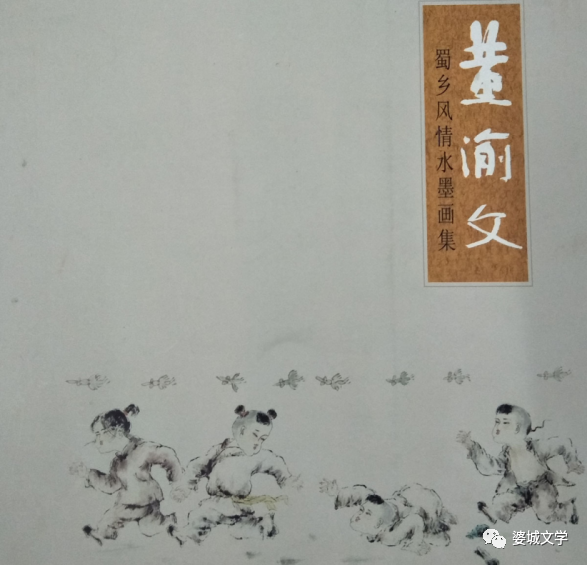 董渝文
蜀乡风情水墨画集
婆城文学